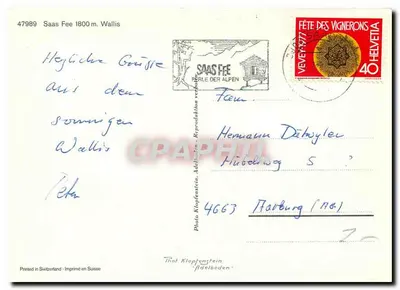 47989 Saas Fee 1800 m. Wallis
Herzliche Grüsse
aus dem
sonnigen
Wallis
Peter
SAAS FEE
PERLE DER ALPEN
VEVEY 1977 FÊTE DES VIGNERONS
HELVETIA
40
Fam.
Hermann Dätwyler
5
4663 Aarburg (AG)
Photo Klopfenstein, Adelboden, Reproduktion verboten
Phot. Klopfenstein
Adelboden
Printed in Switzerland - Imprimé en Suisse
CPAPHIL